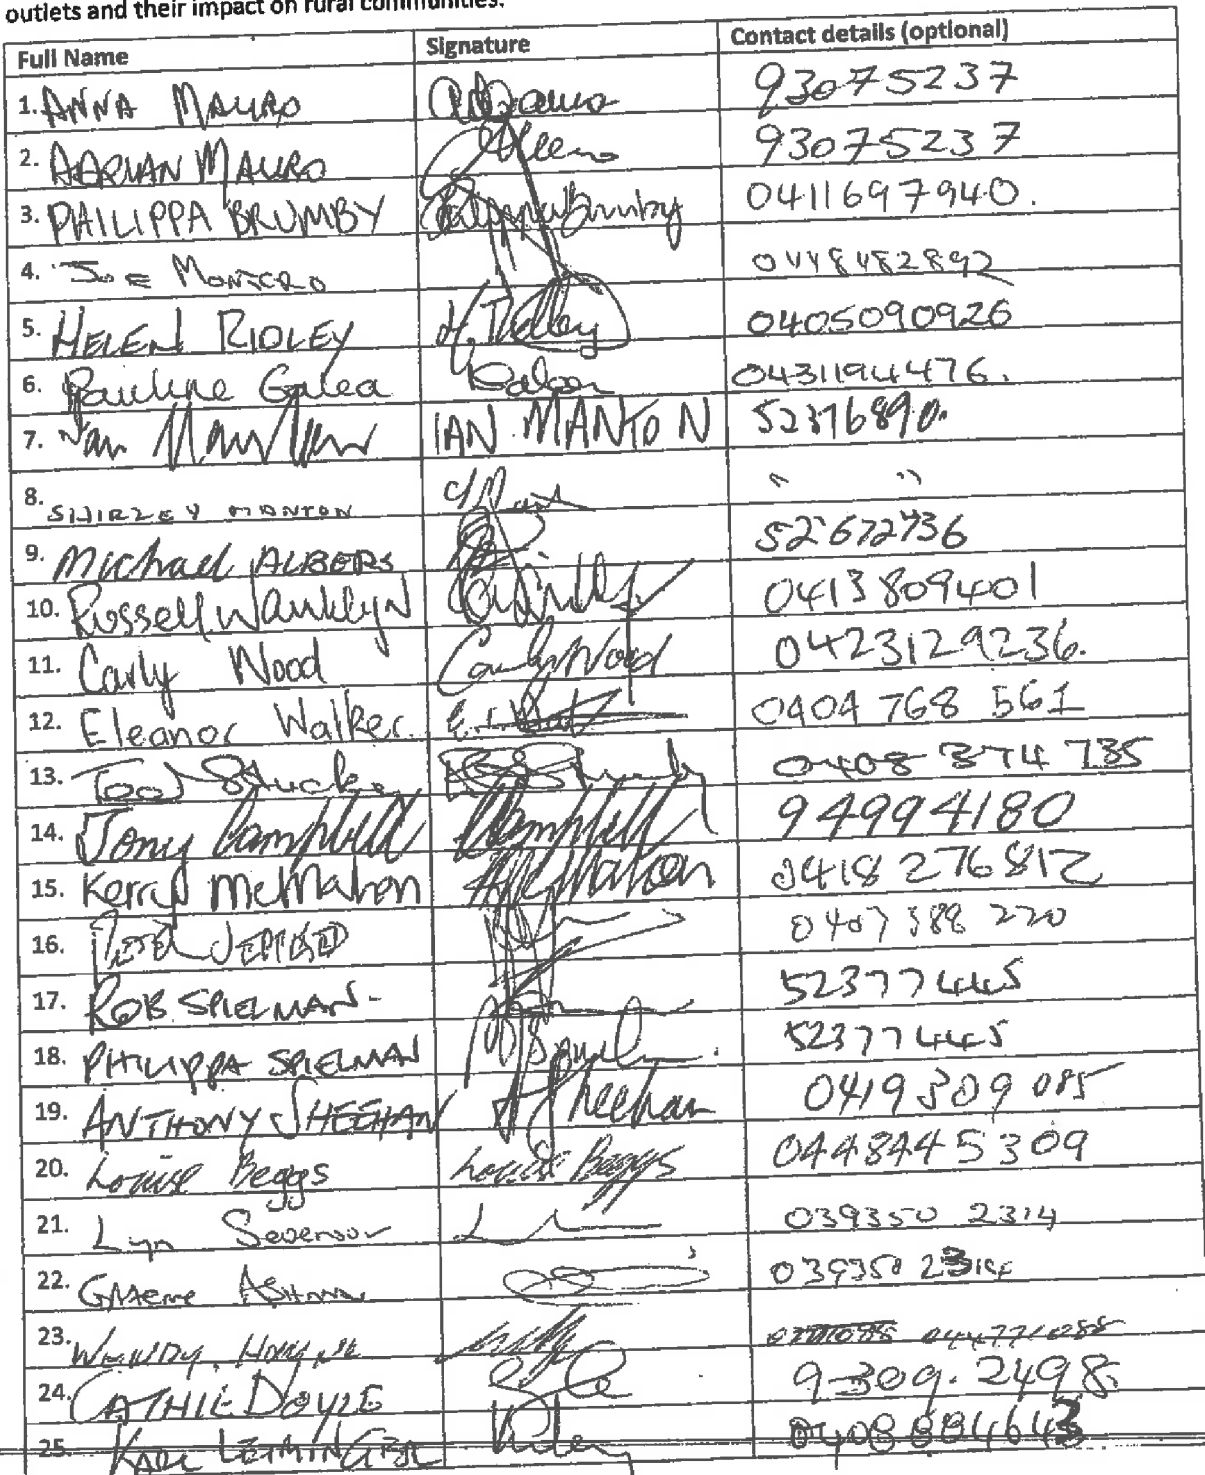 outlets and their impact on rural communities.
Full Name Signature Contact details (optional)
1. ANNA MAURO 93075237
2. ADRIAN MAURO 93075237
3. PHILIPPA BRUMBY Philippa Brumby 0411697940.
4. JOE MONTERO 0448482892
5. HELEN RIDLEY H. Ridley 0405090926
6. Pauline Galea 0431194476.
7. Ian IAN MANTON 52376890.
8. SHIRLEY MANTON " "
9. Michael ALBERS 52672736
10. Russell Wanklyn 0413809401
11. Carly Wood Carly Wood 0423129236.
12. Eleanor Walker 0404 768 561
13. Tod 0408 374 735
14. Tony Campbell Campbell 94994180
15. Kerry McMahon McMahon 0418 276812
16. 0407 388 220
17. ROB SPIELMAN 52377445
18. PHILIPPA SPIELMAN 52377445
19. ANTHONY SHEEHAN A Sheehan 0419 309 085
20. Louise Beggs Louise Beggs 0448445309
21. Lyn 039350 2314
22. Graeme 039350 2314
23.
24. CATHIE DOYLE 9309.2498
25. 0408884643